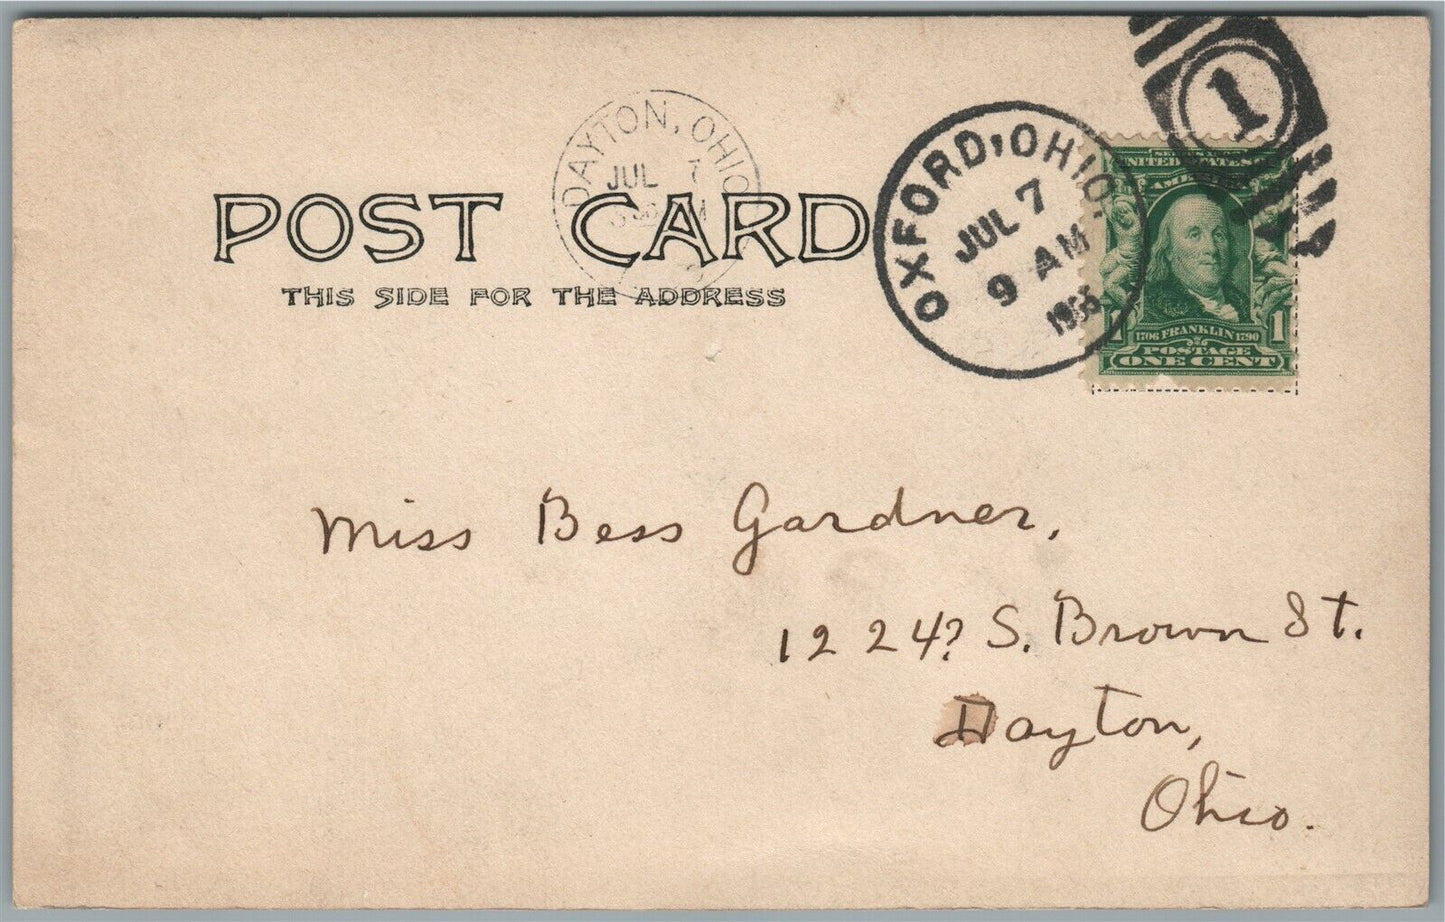 POST CARD
THIS SIDE FOR THE ADDRESS
DAYTON, OHIO
JUL 7
OXFORD, OHIO.
JUL 7
9 AM
1
UNITED STATES OF
AMERICA
1 1
1706 FRANKLIN 1790
POSTAGE
ONE CENT
Miss Bess Gardner,
1224? S. Brown St.
Dayton,
Ohio.